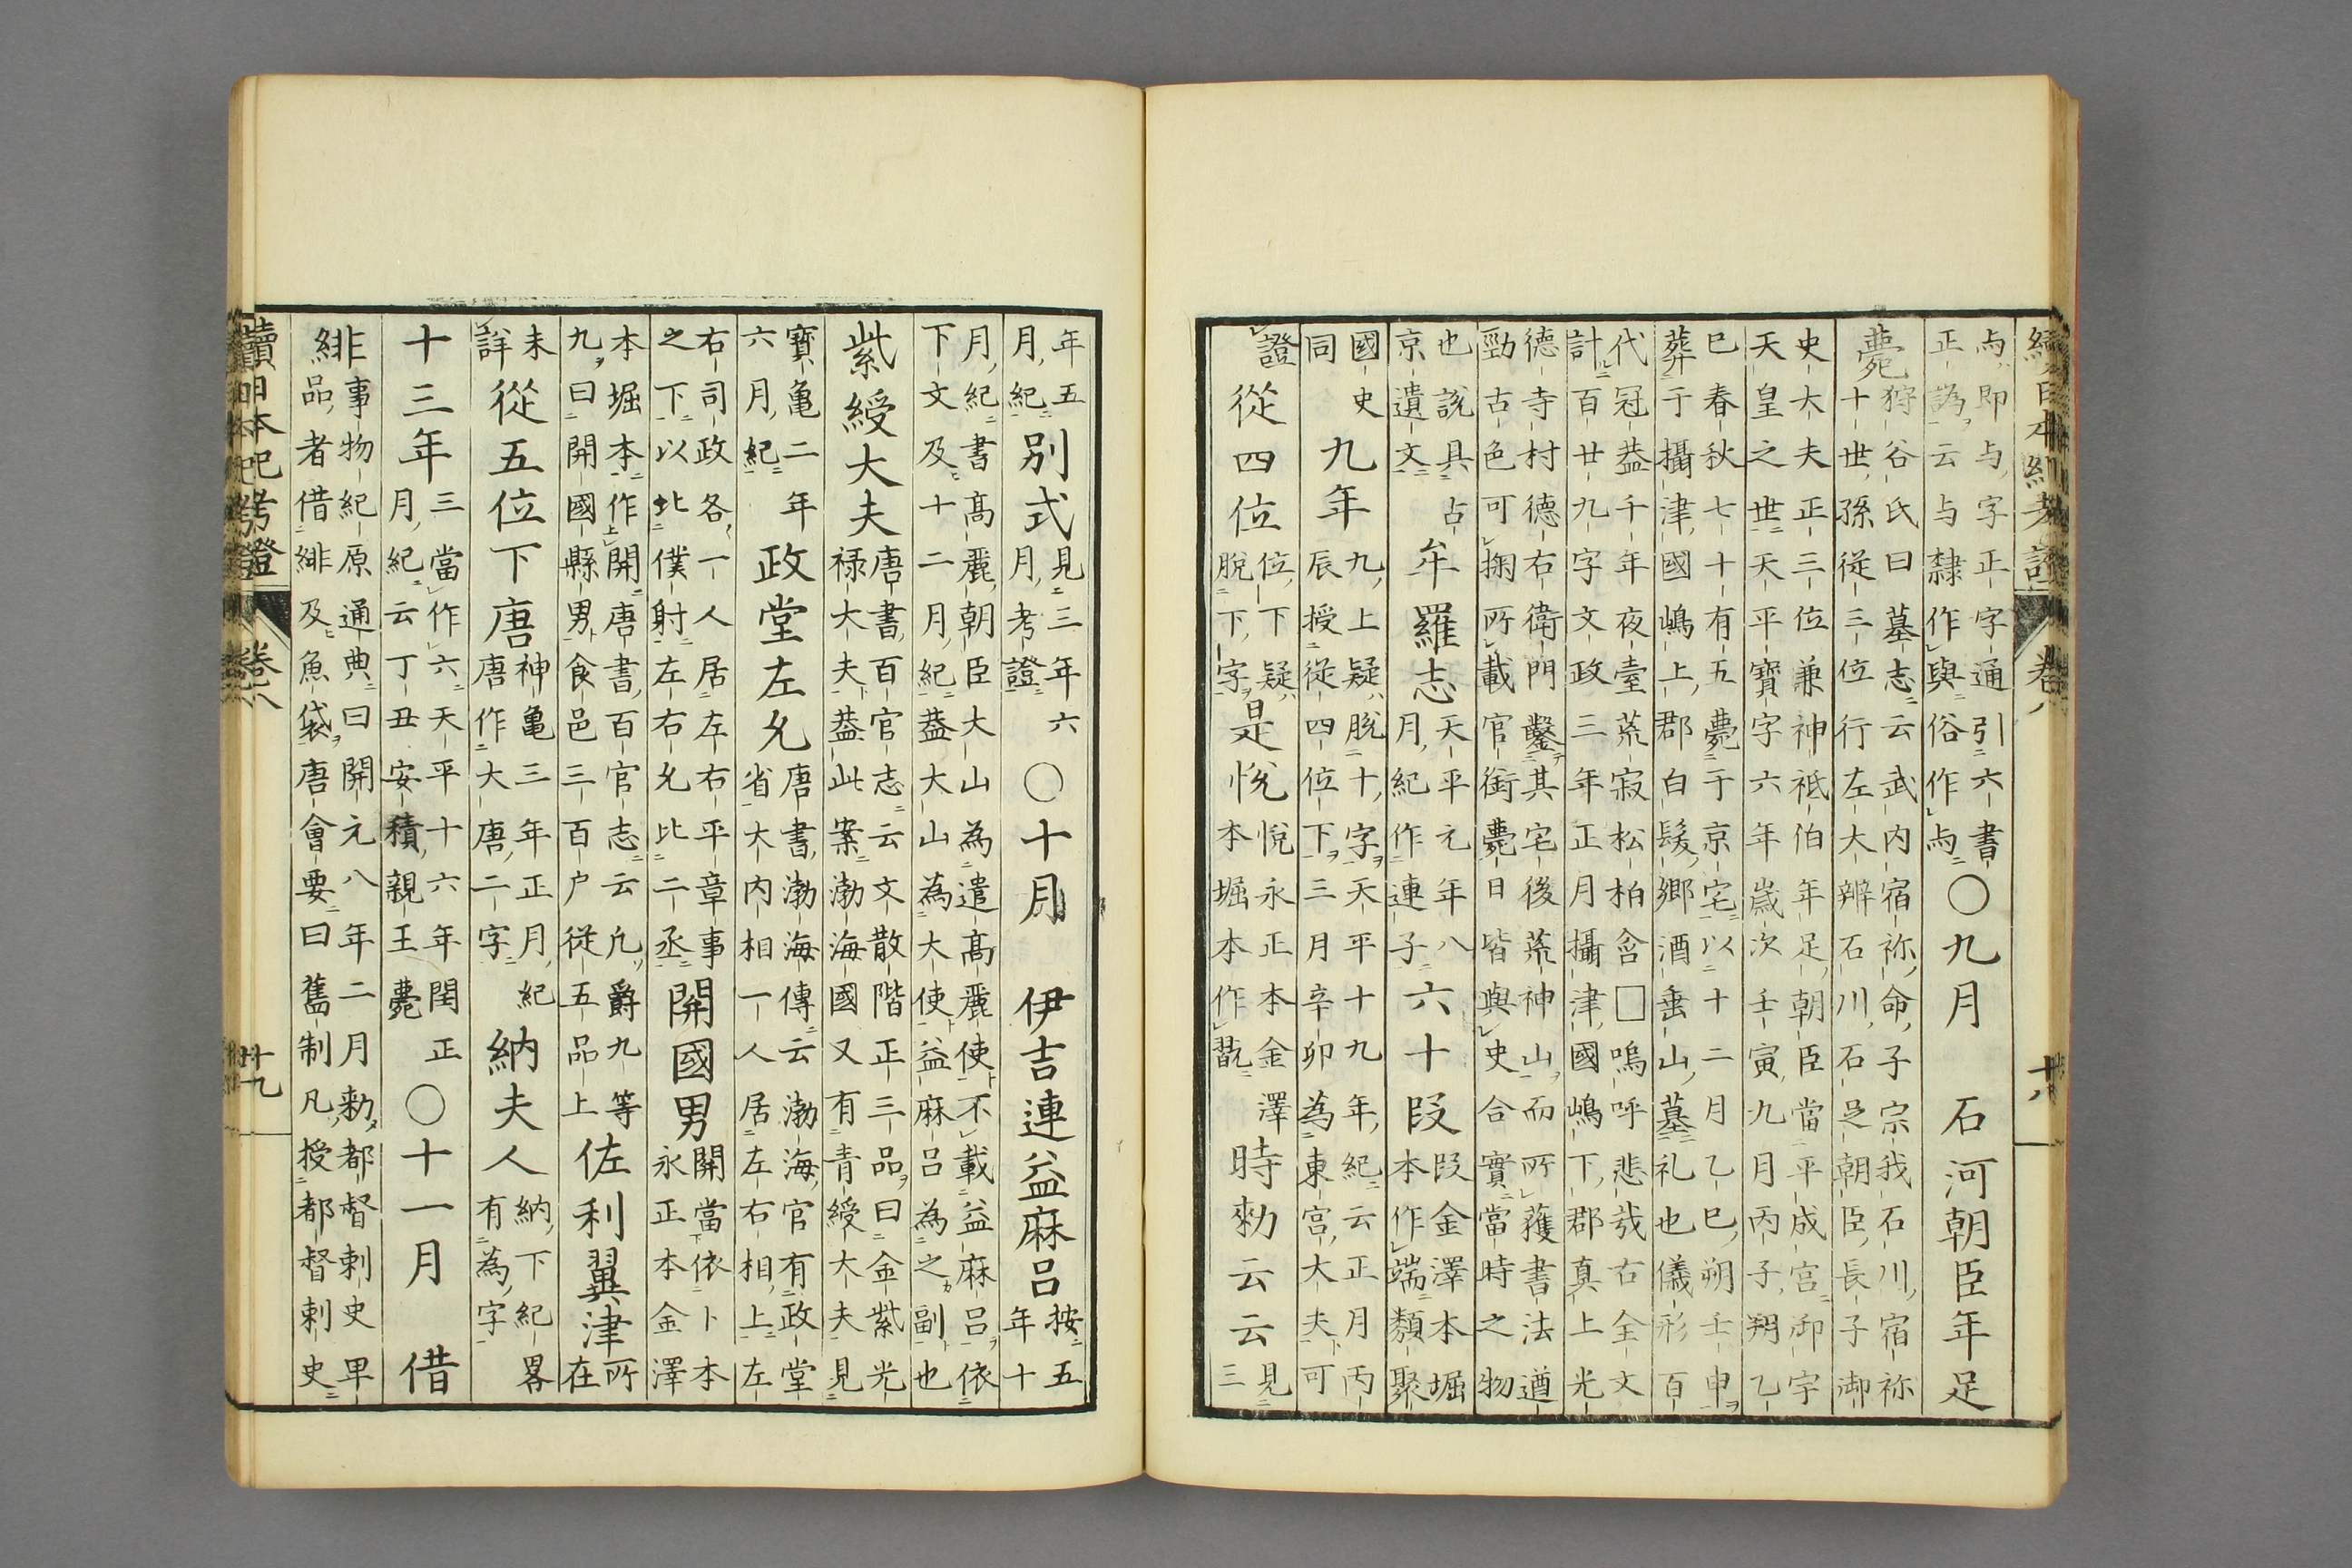 續日本紀考證 卷八 十八
与、即与字正字通引六書○九月 石河朝臣年足
正譌云与隸作與俗作与
薨狩谷氏曰墓志云武内宿祢命子宗我石川宿祢
十世孫從三位行左大辨石川石足朝臣長子御
史大夫正三位兼神祇伯年足朝臣當平成宮御宇
天皇之世天平寶字六年歲次壬寅九月丙子朔乙
巳春秋七十有五薨于京宅以十二月乙巳朔壬申
葬于攝津國嶋上郡白髮鄉酒垂山墓礼也儀形百
代冠蓋千年夜臺荒寂松柏含□嗚呼悲哉右全文
計百廿九字文政三年正月攝津國嶋下郡真上光
德寺村德右衛門鑿其宅後荒神山而所獲書法遒
勁古色可掬所載官銜薨日皆與史合實當時之物
也說具古牟羅志天平元年八六十段段金澤本堀
京遺文月紀作連子本作端類聚
國史九年九上疑脫十字天平十九年紀云正月丙
同辰授從四位下三月辛卯為東宮大夫可
證從四位位下疑是悅悅永正本金澤時勅云云見
脫下字本堀本作翫三
年五別式見三年六○十月 伊吉連益麻呂按五
月紀月考證年十
月紀書高麗朝臣大山為遣高麗使不載益麻呂依
下文及十二月紀蓋大山為大使益麻呂為之副也
紫綬大夫唐書百官志云文散階正三品曰金紫光
祿大夫蓋此案渤海國又有青綬大夫見
寶龜二年政堂左允唐書渤海傳云渤海官有政堂
六月紀省大内相一人居左右相上左
右司政各一人居左右平章事開國男開當依卜本
之下以比僕射左右允比二丞永正本金澤
本堀本作開唐書百官志云凡爵九等佐利翼津所
九曰開國縣男食邑三百户從五品上在
未從五位下唐神龜三年正月紀納夫人納下紀畧
詳唐作大唐二字有為字
十三年三當作六天平十六年閏正○十一月 借
月紀云丁丑安積親王薨
緋事物紀原通典曰開元八年二月勅都督剌史卑
品者借緋及魚袋唐會要曰舊制凡授都督剌史
續日本紀考證 卷八 十九